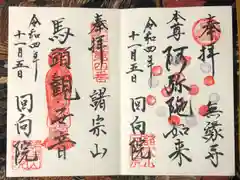 奉拝
本尊
阿弥陀如来
無縁寺
令和四年
十一月五日
回向院
奉拝
諸宗山
馬頭観世音
令和四年
十一月五日
回向院